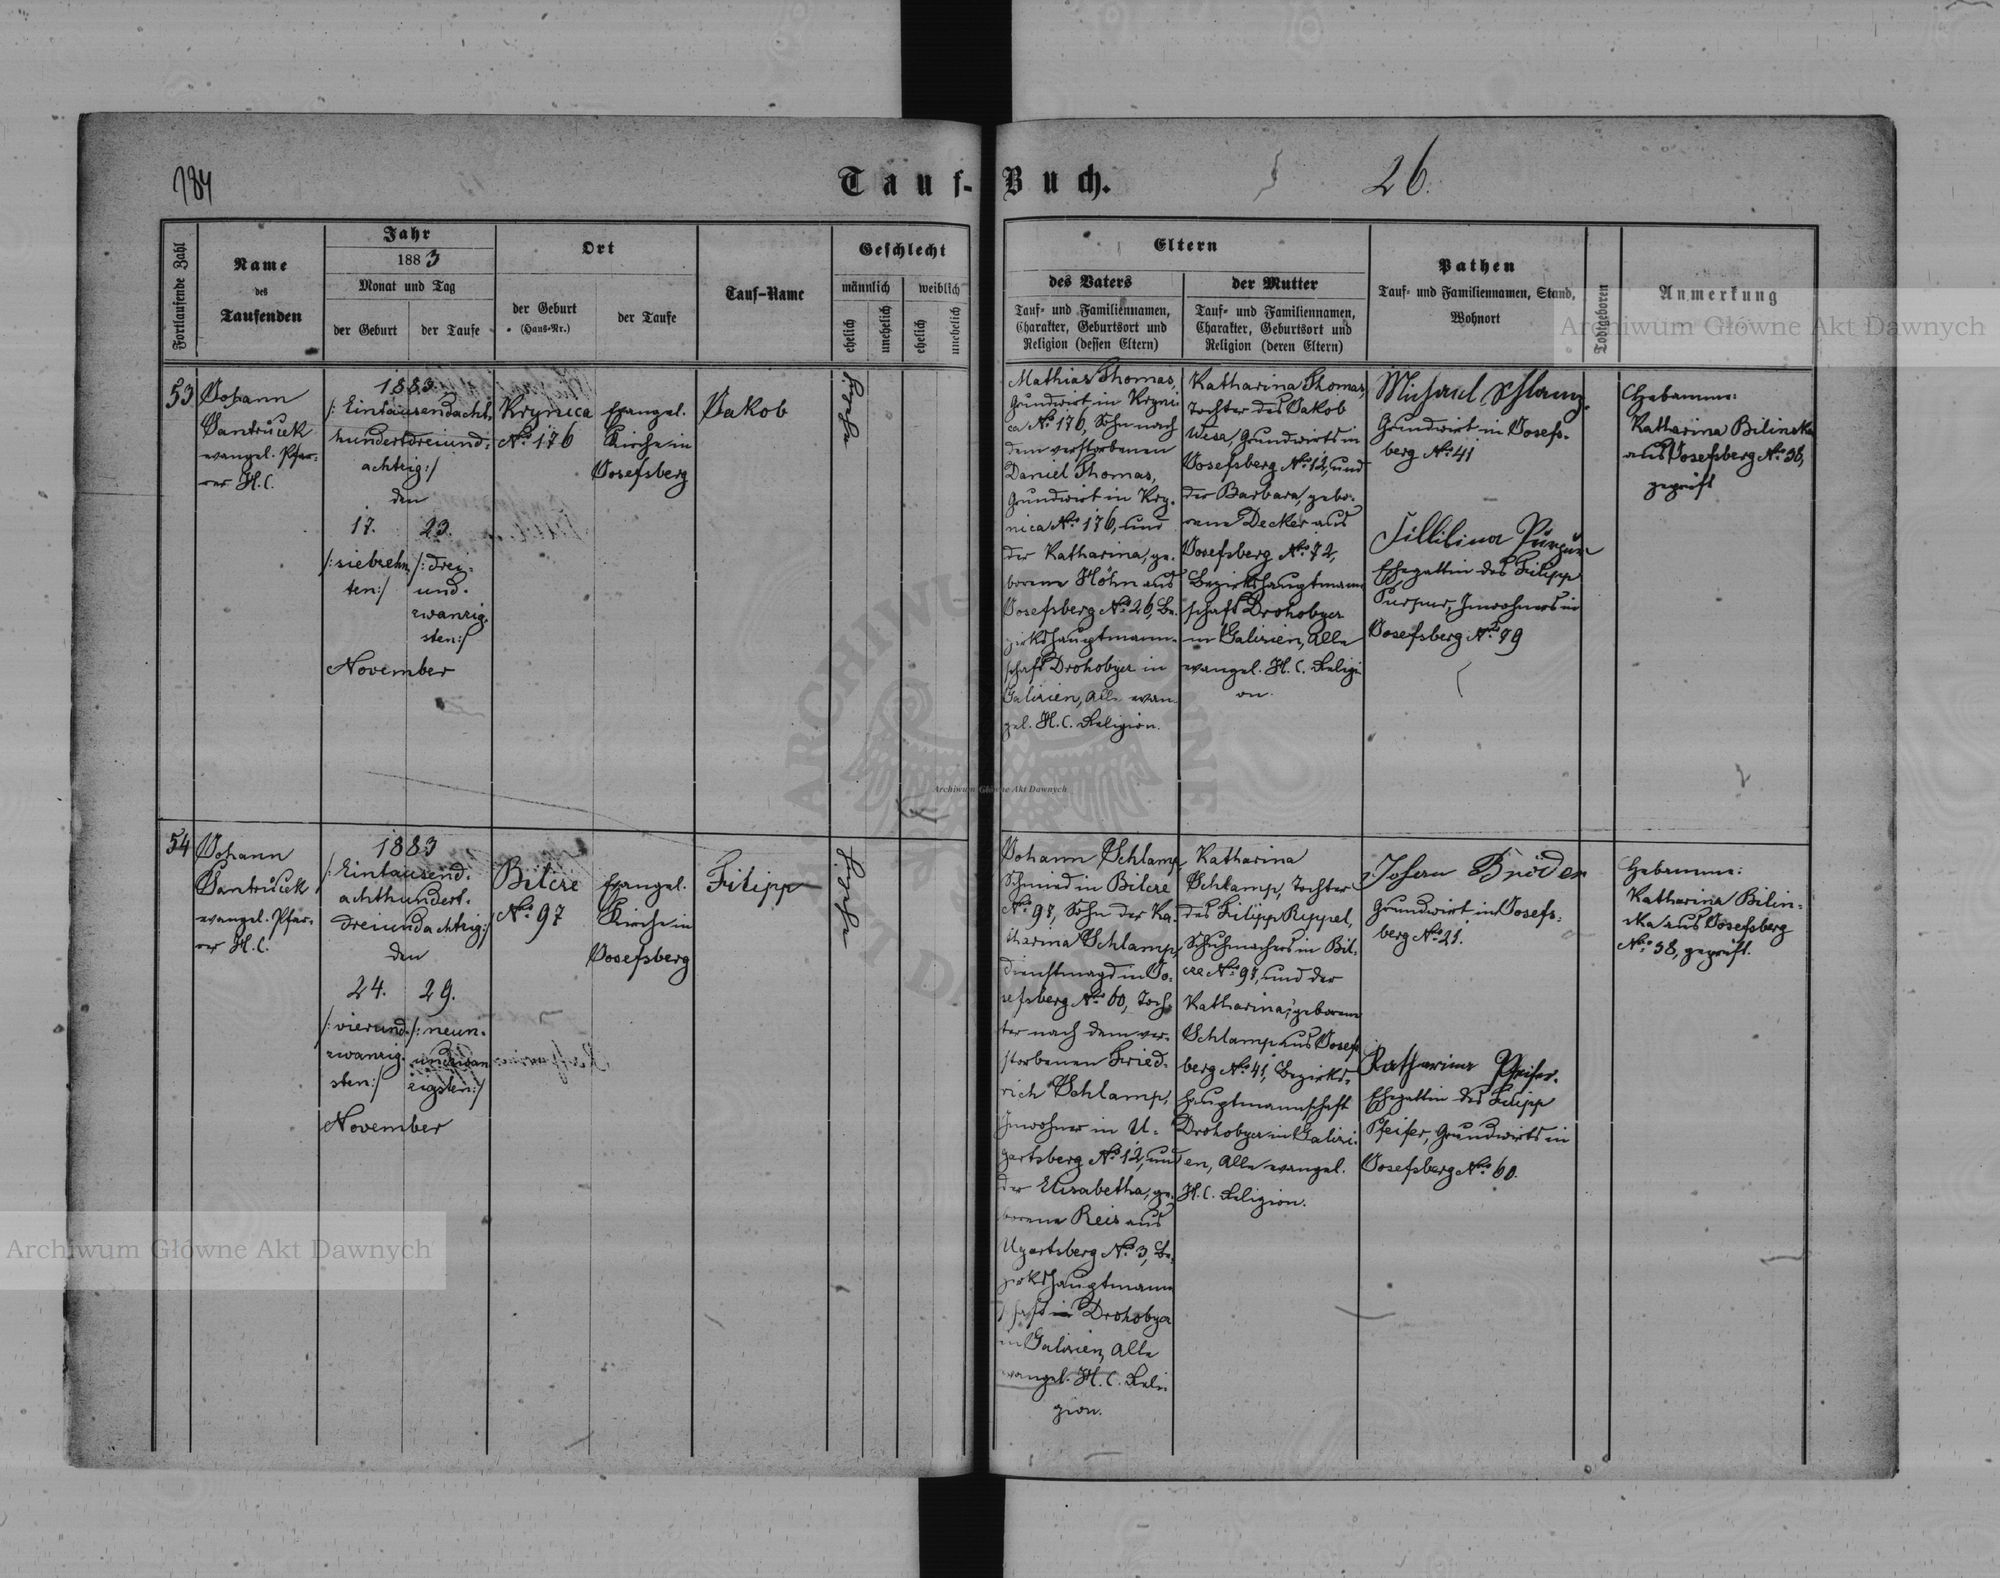 184
Tauf-Buch.
26.
Fortlaufende Zahl
Name
des
Taufenden
Jahr
1883
Monat und Tag
der Geburt
der Taufe
Ort
der Geburt
(Haus-Nr.)
der Taufe
Tauf-Name
Geschlecht
männlich
weiblich
ehelich
unehelich
ehelich
unehelich
Eltern
des Vaters
Tauf- und Familiennamen,
Charakter, Geburtsort und
Religion (dessen Eltern)
der Mutter
Tauf- und Familiennamen,
Charakter, Geburtsort und
Religion (deren Eltern)
Pathen
Tauf- und Familiennamen, Stand,
Wohnort
Todtgeboren
Anmerkung
53
Johann
Jantrucek
evangel. Pfar-
rer H.C.
1883.
/: Eintausendacht-
hundertdreiund-
achtzig :/
den
17.
23.
/: siebzehn
ten :/
/: drei-
und-
zwanzig-
sten :/
November
Krynica
No. 176
Evangel.
Kirche in
Josefsberg
Jakob
Mathias Thomas,
Grundwirt in Kryni
ca No. 176, Sohn nach
dem verstorbenen
Daniel Thomas,
Grundwirt in Kry-
nica No. 176, und
der Katharina, ge-
borene Höhn aus
Josefsberg No. 26, Be-
zirkshauptmann-
schaft Drohobycz in
Galizien, alle evan-
gel. H.C. Religion.
Katharina Thomas,
Tochter des Jakob
Wesa, Grundwirts in
Josefsberg No. 12, und
der Barbara, gebo-
rene Decker aus
Josefsberg No. 72,
Bezirkshauptmann
schaft Drohobycz
in Galizien, alle
evangel. H.C. Religi
on.
Michael
Grundwirt in Josefs-
berg No. 41
Ehegattin des Filipp
Inwohners in
Josefsberg No. 79
Hebamme:
Katharina Bilinska
aus Josefsberg No. 38,
geprüft
54
Johann
Jantrucek
evangel. Pfar-
rer H.C.
1883
/: Eintausend-
achthundert-
dreiundachtzig :/
den
24.
29.
/: vierund-
zwanzig-
sten :/
/: neun-
undzwan
zigsten :/
November
Bilcze
No. 97
Evangel.
Kirche in
Josefsberg
Filipp
Johann Schlamp,
Schmied in Bilcze
No. 97, Sohn der Ka-
tharina Schlamp,
Dienstmagd in Jo-
sefsberg No. 60, Toch-
ter nach dem ver-
storbenen Fried-
rich Schlamp,
Inwohner in U-
gartsberg No. 12, und
der Elisabetha, ge-
borene Reis aus
Ugartsberg No. 3, Be-
zirkshauptmann
schaft in Drohobycz
in Galizien, alle
evangel. H.C. Reli-
gion.
Katharina
Schlamp, Tochter
des Filipp Rippel,
Schuhmachers in Bil-
cze No. 97, und der
Katharina, geborene
Schlamp aus Josefs
berg No. 41, Bezirks-
hauptmannschaft
Drohobycz in Galizi-
en, alle evangel.
H.C. Religion.
Johann Bröder
Grundwirt in Josefs-
berg No. 21.
Katharina Pfeifer.
Ehegattin des Filipp
Pfeifer, Grundwirts in
Josefsberg No. 60.
Hebamme:
Katharina Bilin-
ska aus Josefsberg
No. 38, geprüft.
Archiwum Główne Akt Dawnych
Archiwum Główne Akt Dawnych
Archiwum Główne Akt Dawnych